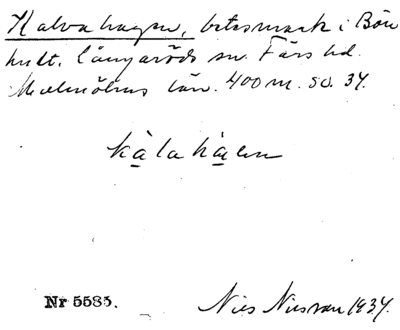 Kalvahagen, betesmark i Bön
hult. Långaröds sn. Färs hd.
Malmöhus län. 400 m. sv. 34.
kàlahàen
Nr 5585.
Nils Nilsson 1934.